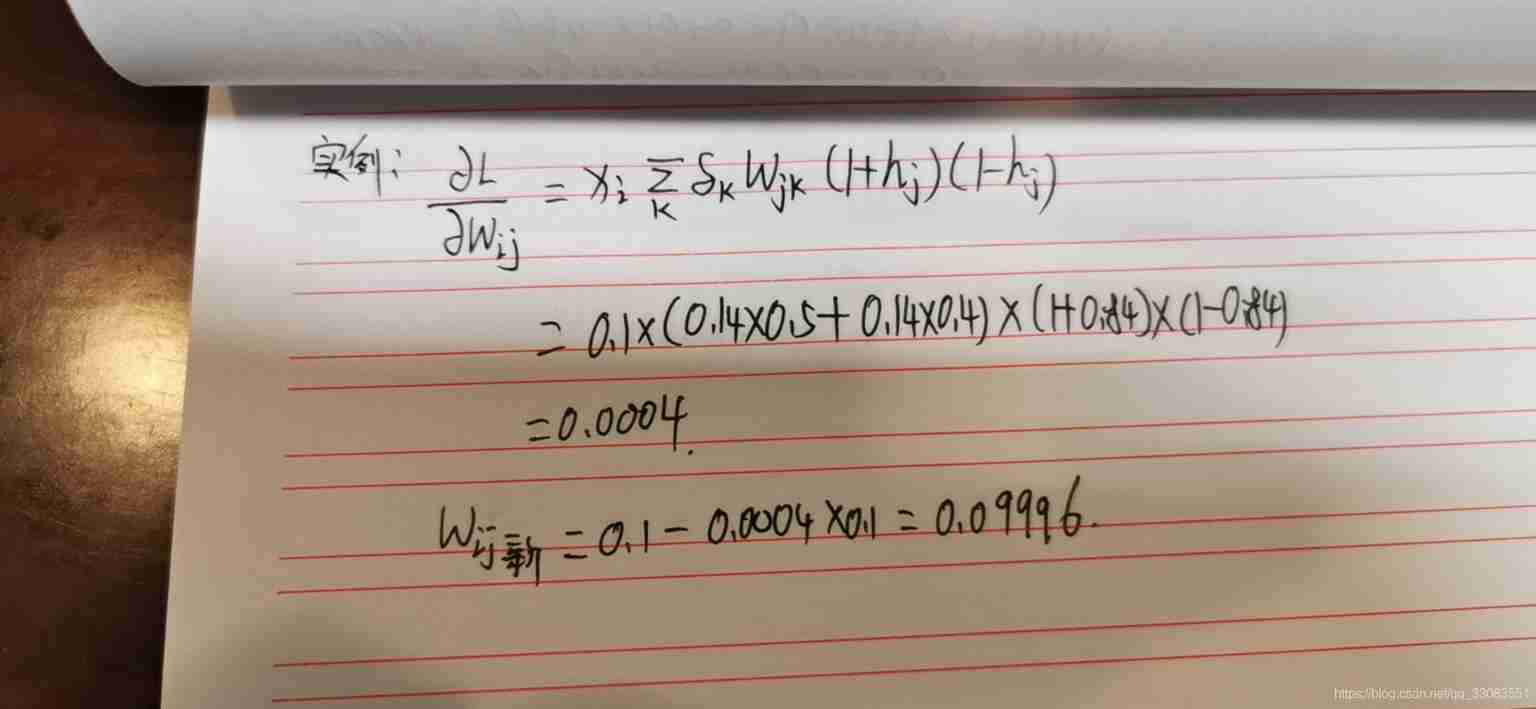 实例: ∂L/∂Wij = xi Σk δk Wjk (1+hj)(1-hj)
= 0.1×(0.14×0.5+0.14×0.4)×(1+0.84)×(1-0.84)
=0.0004.
Wij新 = 0.1 - 0.0004×0.1 = 0.09996.
https://blog.csdn.net/qq_33083551